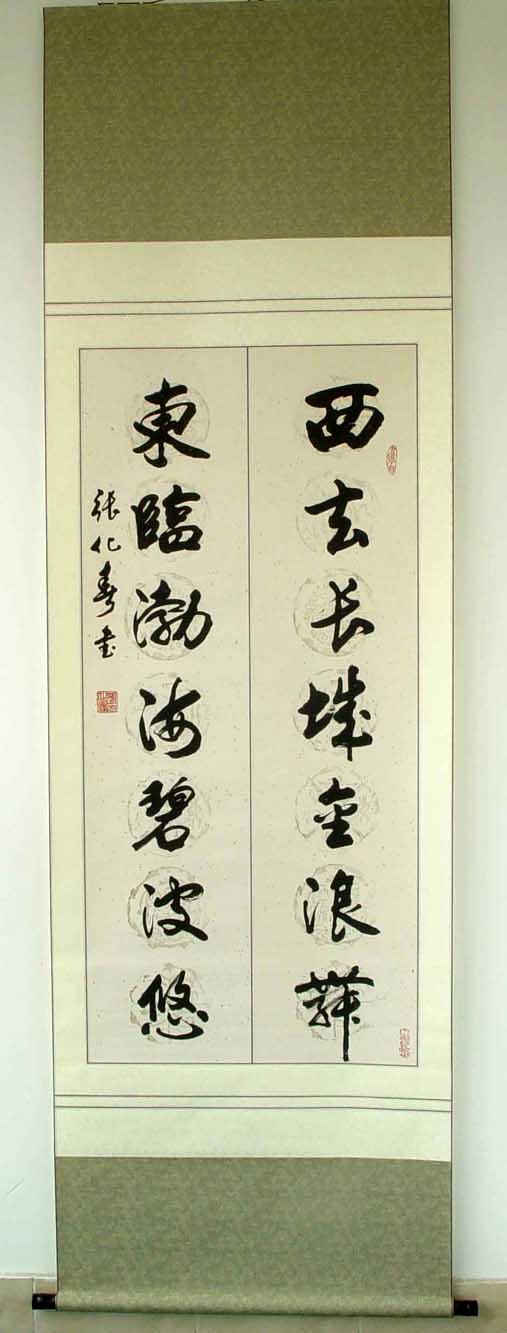 西去长城金浪舞
東臨渤海碧波悠
張化春书